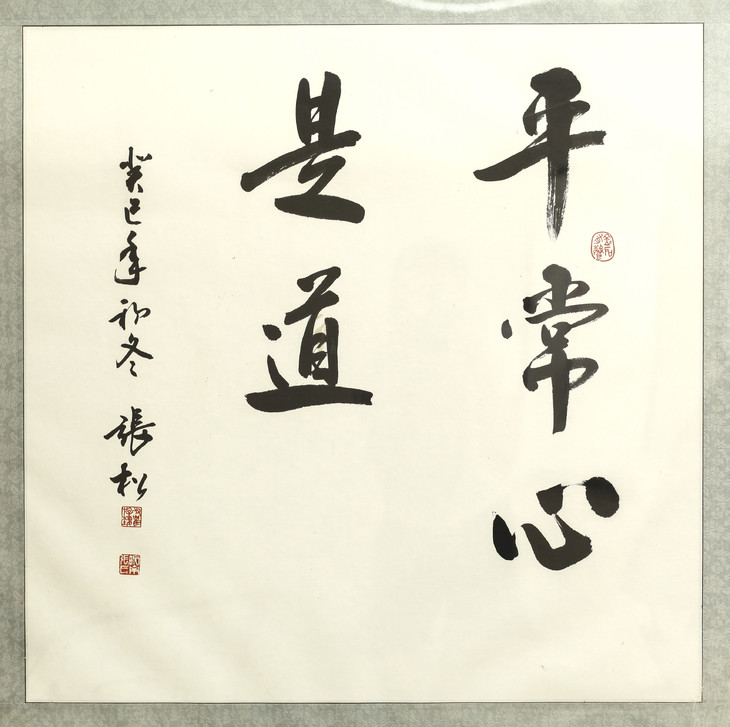 平常心
是道
癸巳年初冬 張松